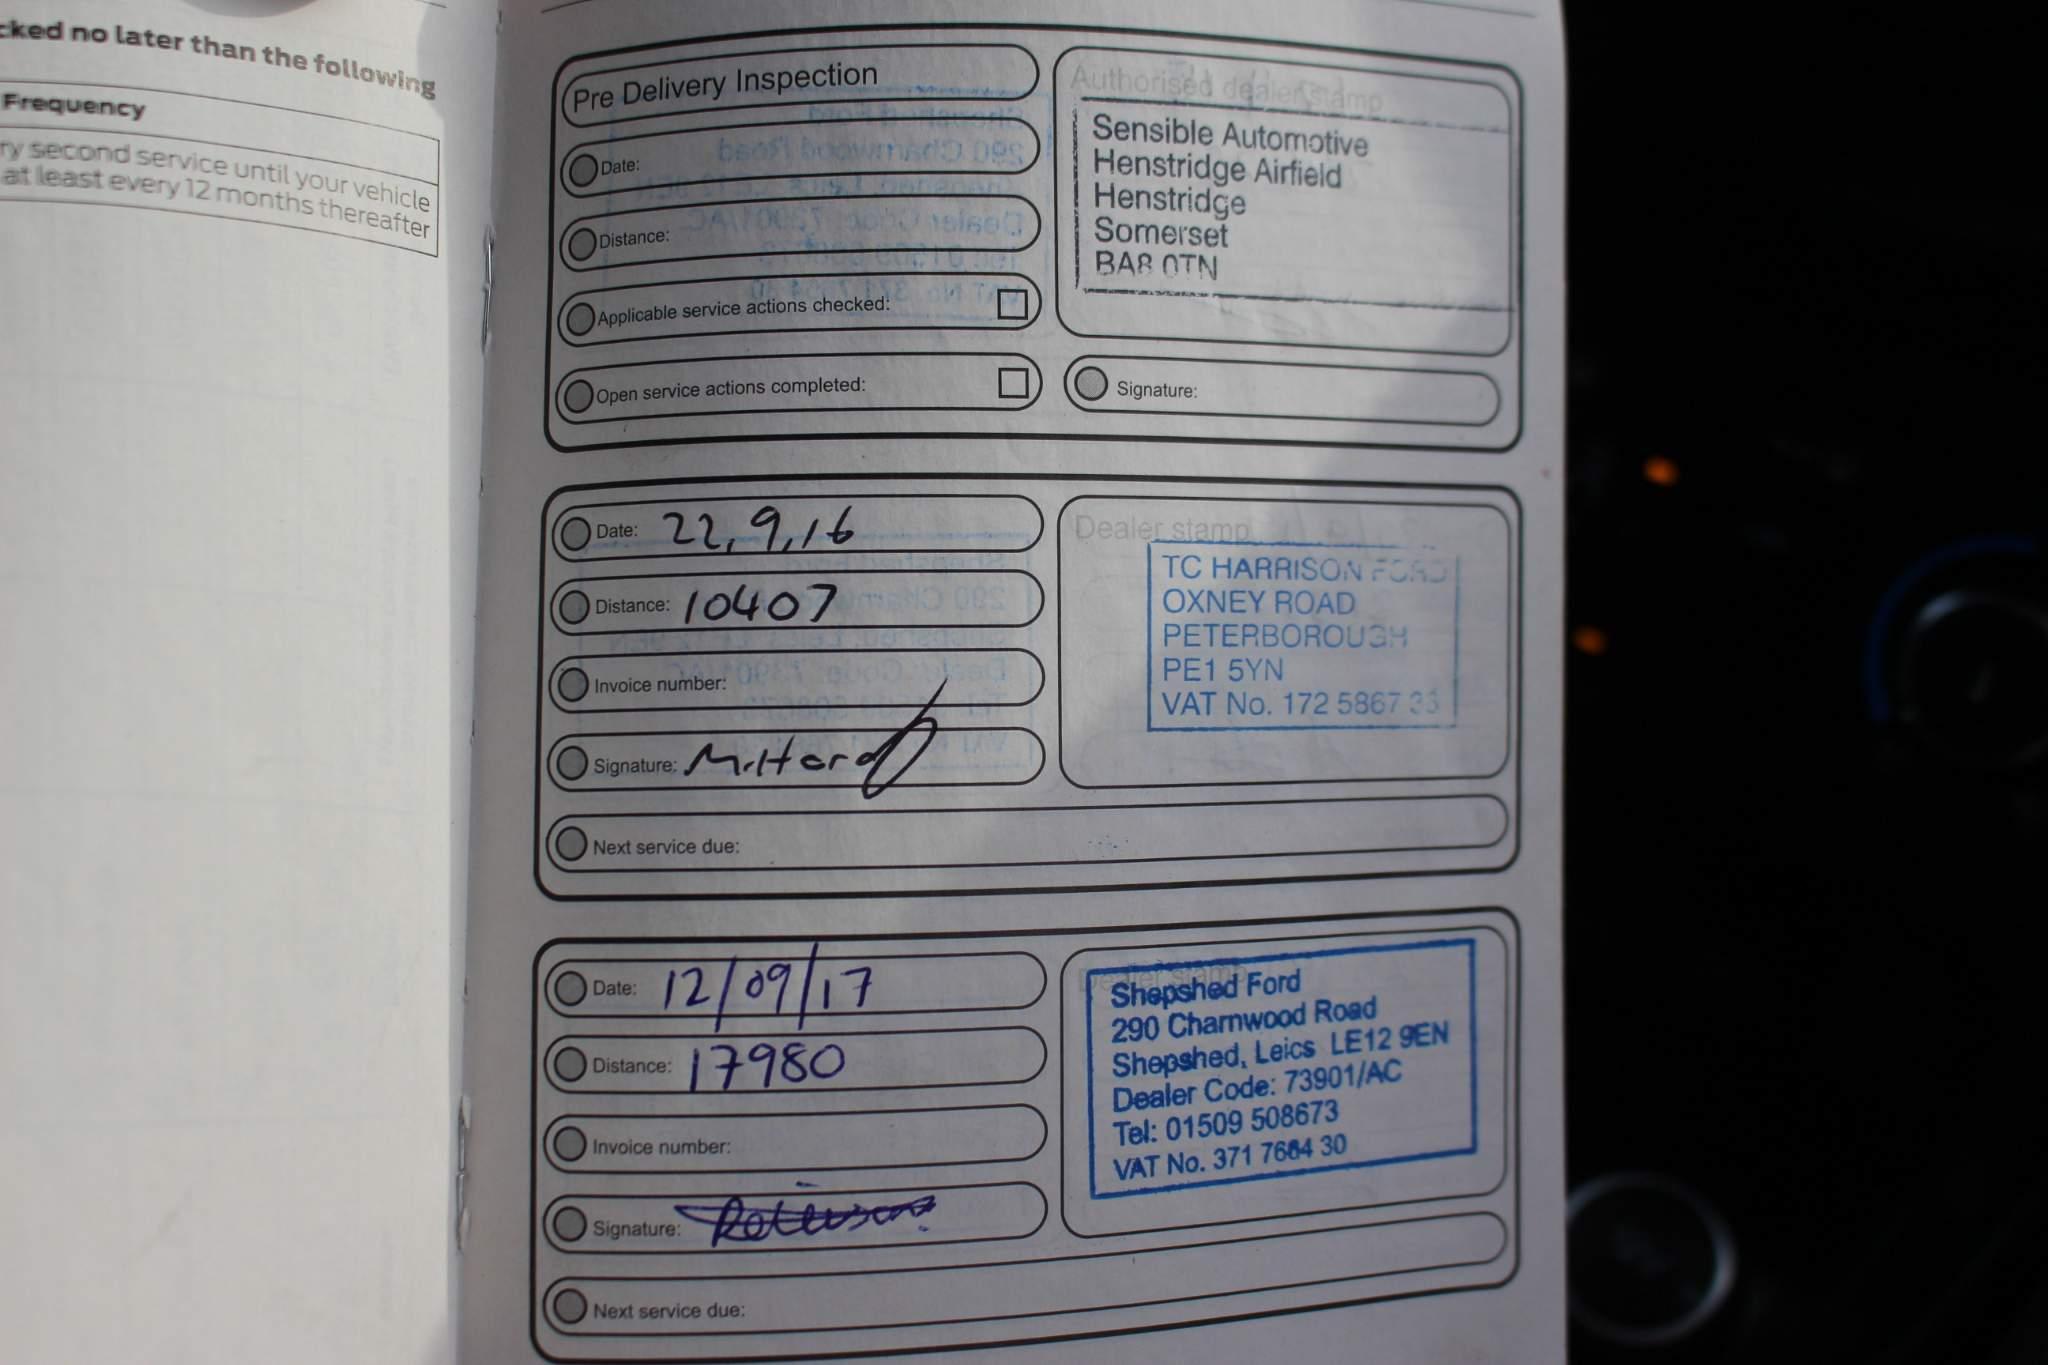 cked no later than the following
Frequency
ry second service until your vehicle
at least every 12 months thereafter
Pre Delivery Inspection
Date:
Distance:
Applicable service actions checked:
Open service actions completed:
Authorised dealer stamp
Sensible Automotive
Henstridge Airfield
Henstridge
Somerset
BA8 0TN
Signature:
Date: 22,9,16
Distance: 10407
Invoice number:
Signature:
Next service due:
Dealer stamp
TC HARRISON FORD
OXNEY ROAD
PETERBOROUGH
PE1 5YN
VAT No. 172 5867 33
Date: 12/09/17
Distance: 17980
Invoice number:
Signature:
Next service due:
Dealer stamp
Shepshed Ford
290 Charnwood Road
Shepshed, Leics LE12 9EN
Dealer Code: 73901/AC
Tel: 01509 508673
VAT No. 371 7664 30